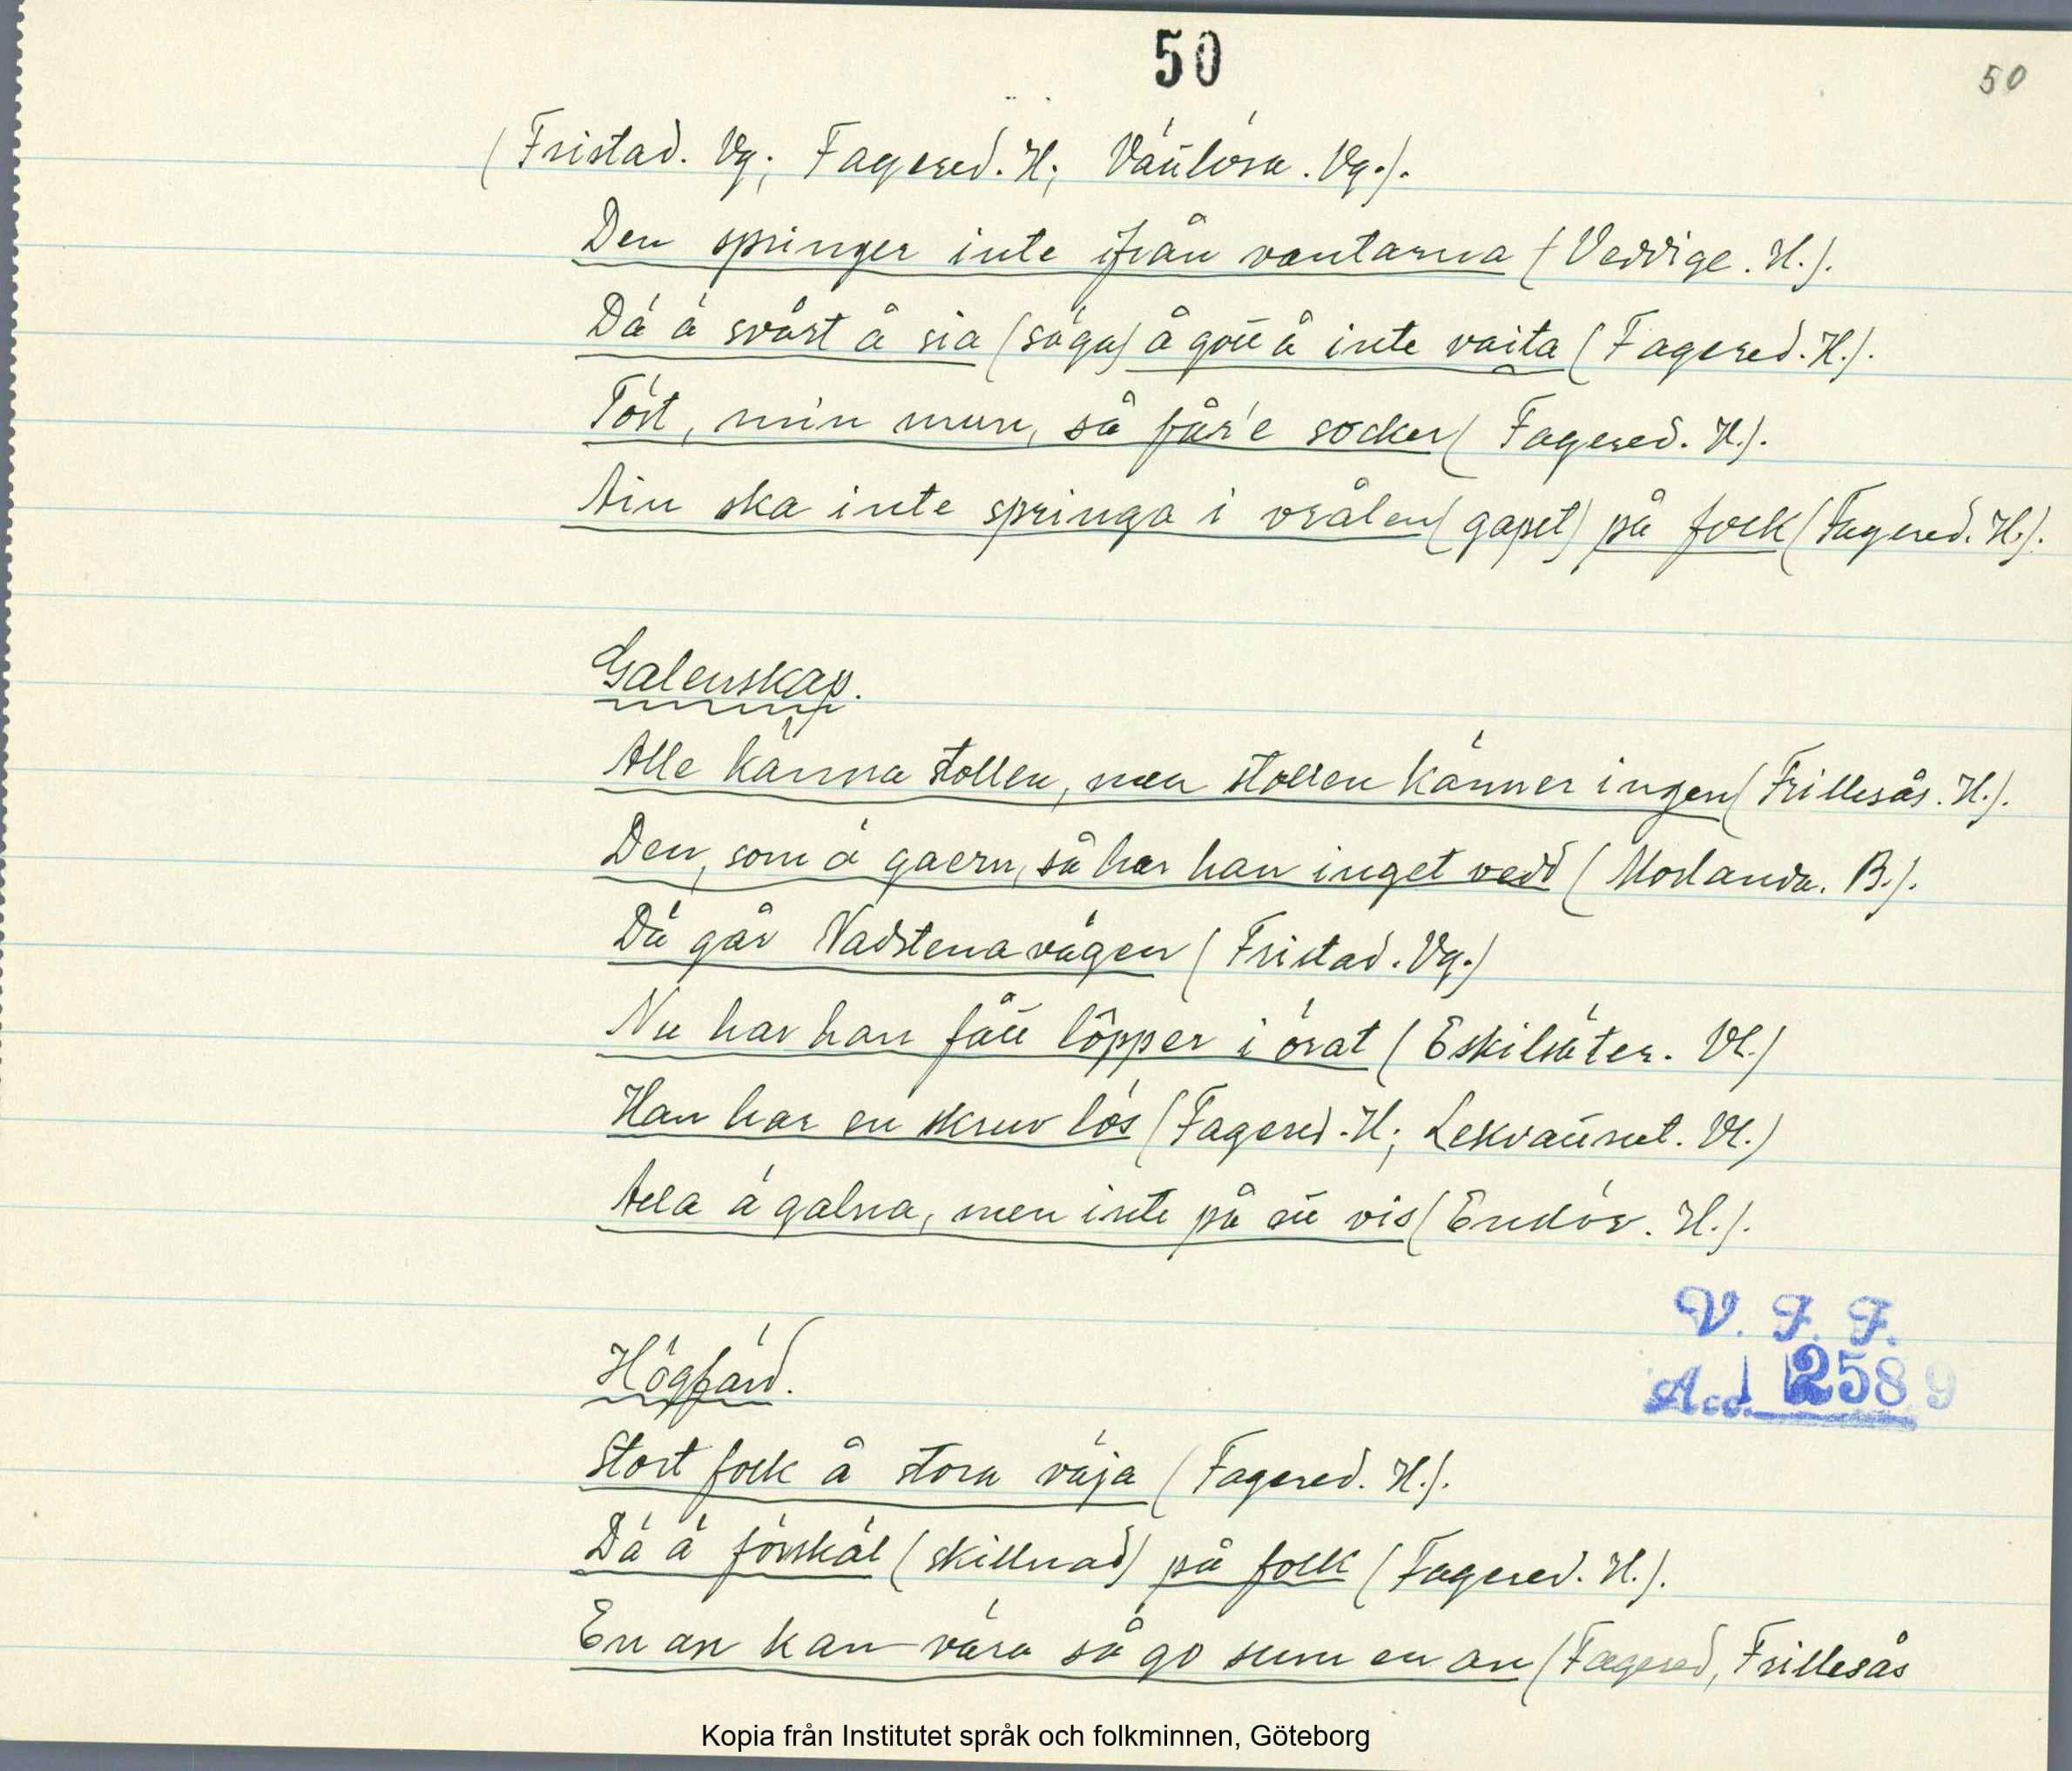 50
50
(Fristad. Vg; Fagered. H; Vänlösa. Vg.).
Den springer inte ifrån vantarna (Veddige. H.).
Dä ä svårt å sia (säga) å gott å inte vaita (Fagered. H.).
Töst, min mun, så får'e socker (Fagered. H.).
Ain ska inte springa i vrålen (gapet) på folk (Fagered. H.).
Galenskap.
Alle känna stollen, men stollen känner ingen (Frillesås. H.).
Den, som ä gaern, så har han inget vedd (Morlanda. B.).
Dä går Vadstenavägen (Fristad. Vg.)
Nu har han fått löpper i örat (Eskilsäter. Vl.)
Han har en skruv lös (Fagered. H; Lekvattnet. Vl.)
Alla ä galna, men inte på ett vis (Enslöv. H.).
V. F. F.
Acc. 2589
Högfärd.
Stort folk å stora väja (Fagered. H.).
Dä ä förskäl (skillnad) på folk (Fagered. H.).
En an kan vära så go sum en an (Fagered, Frillesås
Kopia från Institutet språk och folkminnen, Göteborg